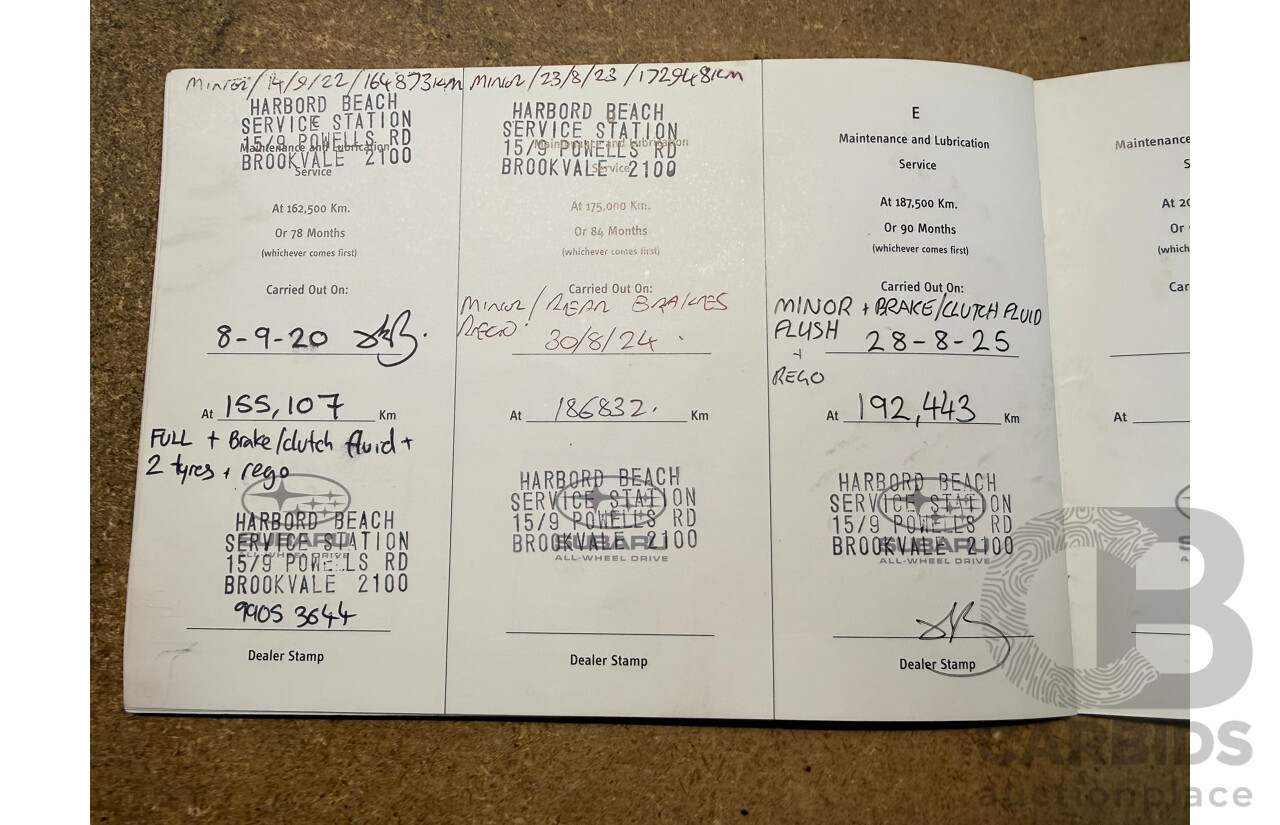 Minor/14/9/22/164873km
HARBORD BEACH
SERVICE STATION
15/9 POWELLS RD
BROOKVALE 2100
Maintenance and Lubrication
Service
At 162,500 Km.
Or 78 Months
(whichever comes first)
Carried Out On:
8-9-20
At 155,107 Km
FULL + Brake/clutch fluid +
2 tyres + rego
HARBORD BEACH
SERVICE STATION
15/9 POWELLS RD
BROOKVALE 2100
SUBARU
ALL-WHEEL DRIVE
9905 3644
Dealer Stamp
Minor/23/8/23/172948km
HARBORD BEACH
SERVICE STATION
15/9 POWELLS RD
BROOKVALE 2100
Maintenance and Lubrication
Service
At 175,000 Km.
Or 84 Months
(whichever comes first)
Carried Out On:
Minor/REAR BRAKES
REGO
30/8/24
At 186832. Km
HARBORD BEACH
SERVICE STATION
15/9 POWELLS RD
BROOKVALE 2100
SUBARU
ALL-WHEEL DRIVE
Dealer Stamp
E
Maintenance and Lubrication
Service
At 187,500 Km.
Or 90 Months
(whichever comes first)
Carried Out On:
MINOR + BRAKE/CLUTCH FLUID
FLUSH 28-8-25
+
REGO
At 192,443 Km
HARBORD BEACH
SERVICE STATION
15/9 POWELLS RD
BROOKVALE 2100
SUBARU
ALL-WHEEL DRIVE
Dealer Stamp
Maintenance
S
At 20
Or
(which
Car
At
CB
CARBIDS
auctionplace